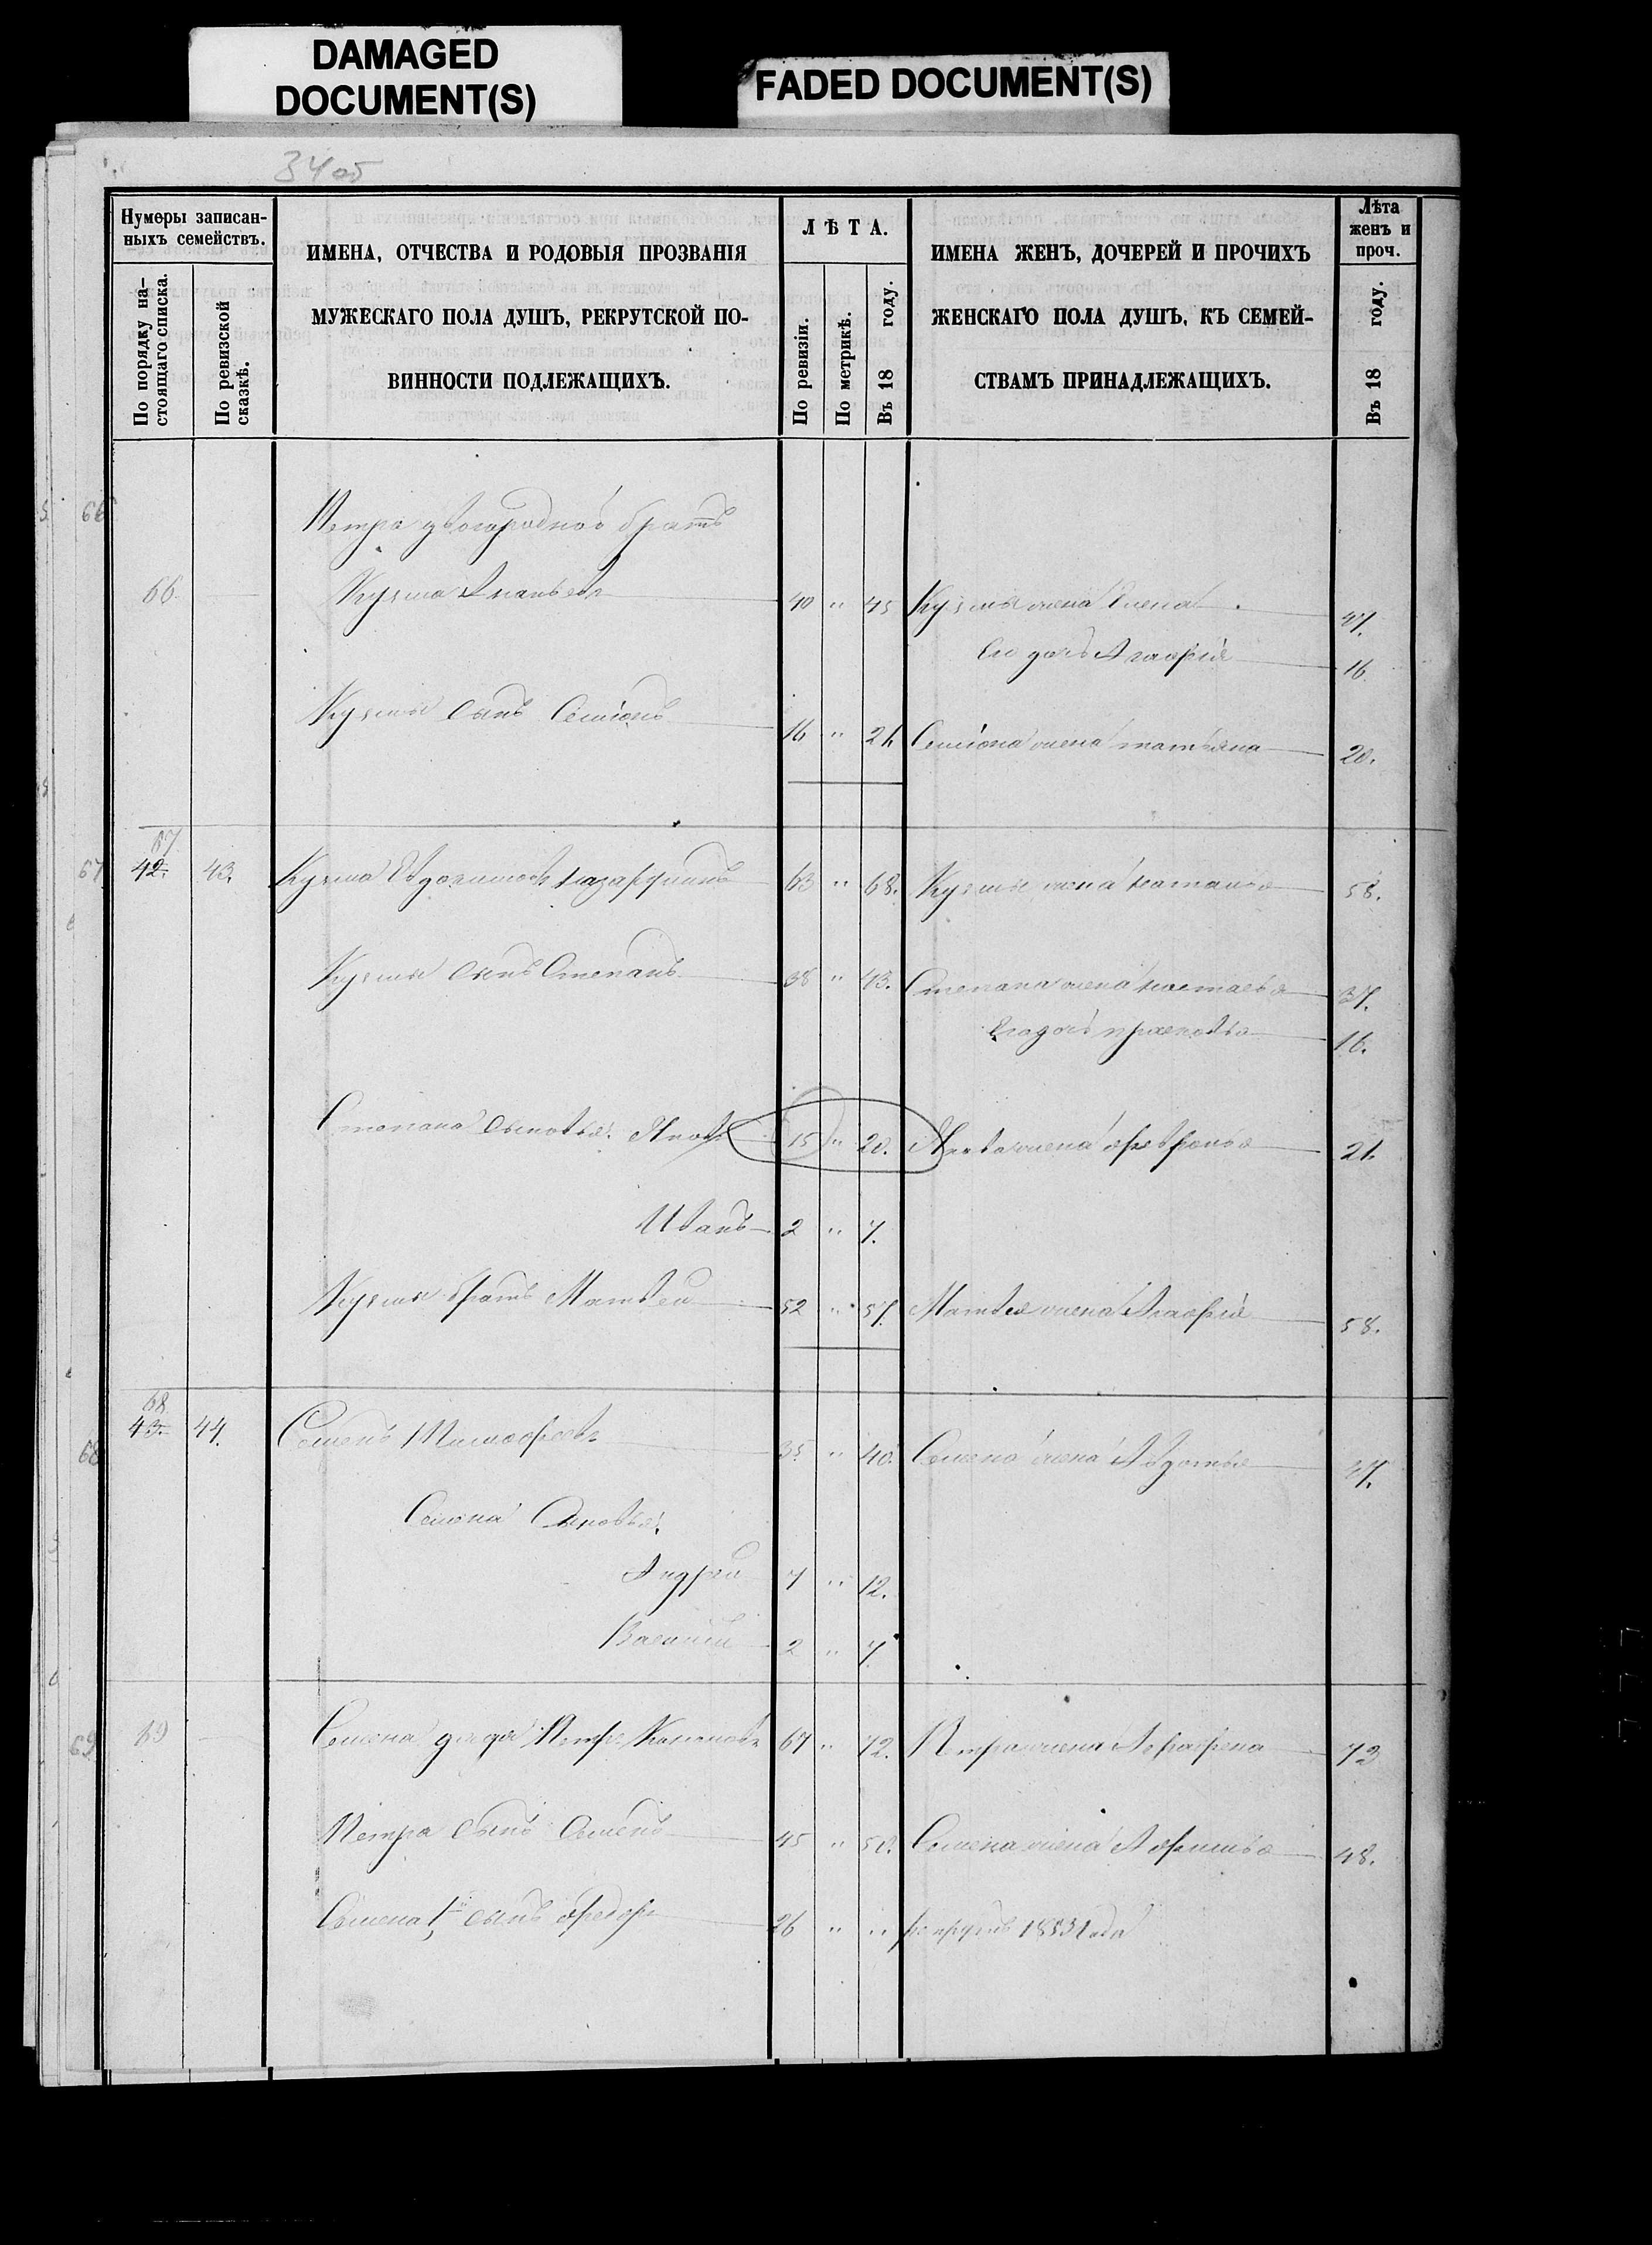 DAMAGED
DOCUMENT(S)
FADED DOCUMENT(S)
34 об
Нумеры записан-
ныхъ семействъ.
По порядку на-
стоящаго списка.
По ревизской
сказкѣ.
ИМЕНА, ОТЧЕСТВА И РОДОВЫЯ ПРОЗВАНІЯ
МУЖЕСКАГО ПОЛА ДУШЪ, РЕКРУТСКОЙ ПО-
ВИННОСТИ ПОДЛЕЖАЩИХЪ.
ЛѢТА.
По ревизіи.
По метрикѣ.
Въ 18 году.
ИМЕНА ЖЕНЪ, ДОЧЕРЕЙ И ПРОЧИХЪ
ЖЕНСКАГО ПОЛА ДУШЪ, КЪ СЕМЕЙ-
СТВАМЪ ПРИНАДЛЕЖАЩИХЪ.
Лѣта
женъ и
проч.
Въ 18 году.
66 Петра двоюродной братъ
66. Кузма Ананьевъ 40 " 45 Кузмы жена Елена 47.
Ево дочь Агафія 16
Кузмы сынъ Семіонъ 16 " 21. Семіона жена татьяна 20.
67
67 42. 43. Кузма Евдокимовъ Назаркинъ 63 " 68. Кузмы жена наталья 58.
Кузмы сынъ Степанъ 38 " 43. Степана жена настасья 37.
Его дочь прасковья 16.
Степана сыновья: Яковъ 15 " 20. Якова жена афросинья 21.
Иванъ 2 " 7.
Кузмы братъ Матвей 52 " 57. Матвея жена Агафія 58.
68
68 43. 44. Семенъ Тимофеевъ 35 " 40. Семена жена Авдотья 37.
Семена Сыновья:
Андрей 7 " 12.
Василий 2 " 7.
69 69 Семена дядя Петръ Кононовъ 67 " 72. Петра жена Аграфена 73
Петра сынъ Семенъ 45 " 50. Семена жена Афимья 48.
Семена 1й сынъ Федоръ 26 " " рекрутъ 1853 года